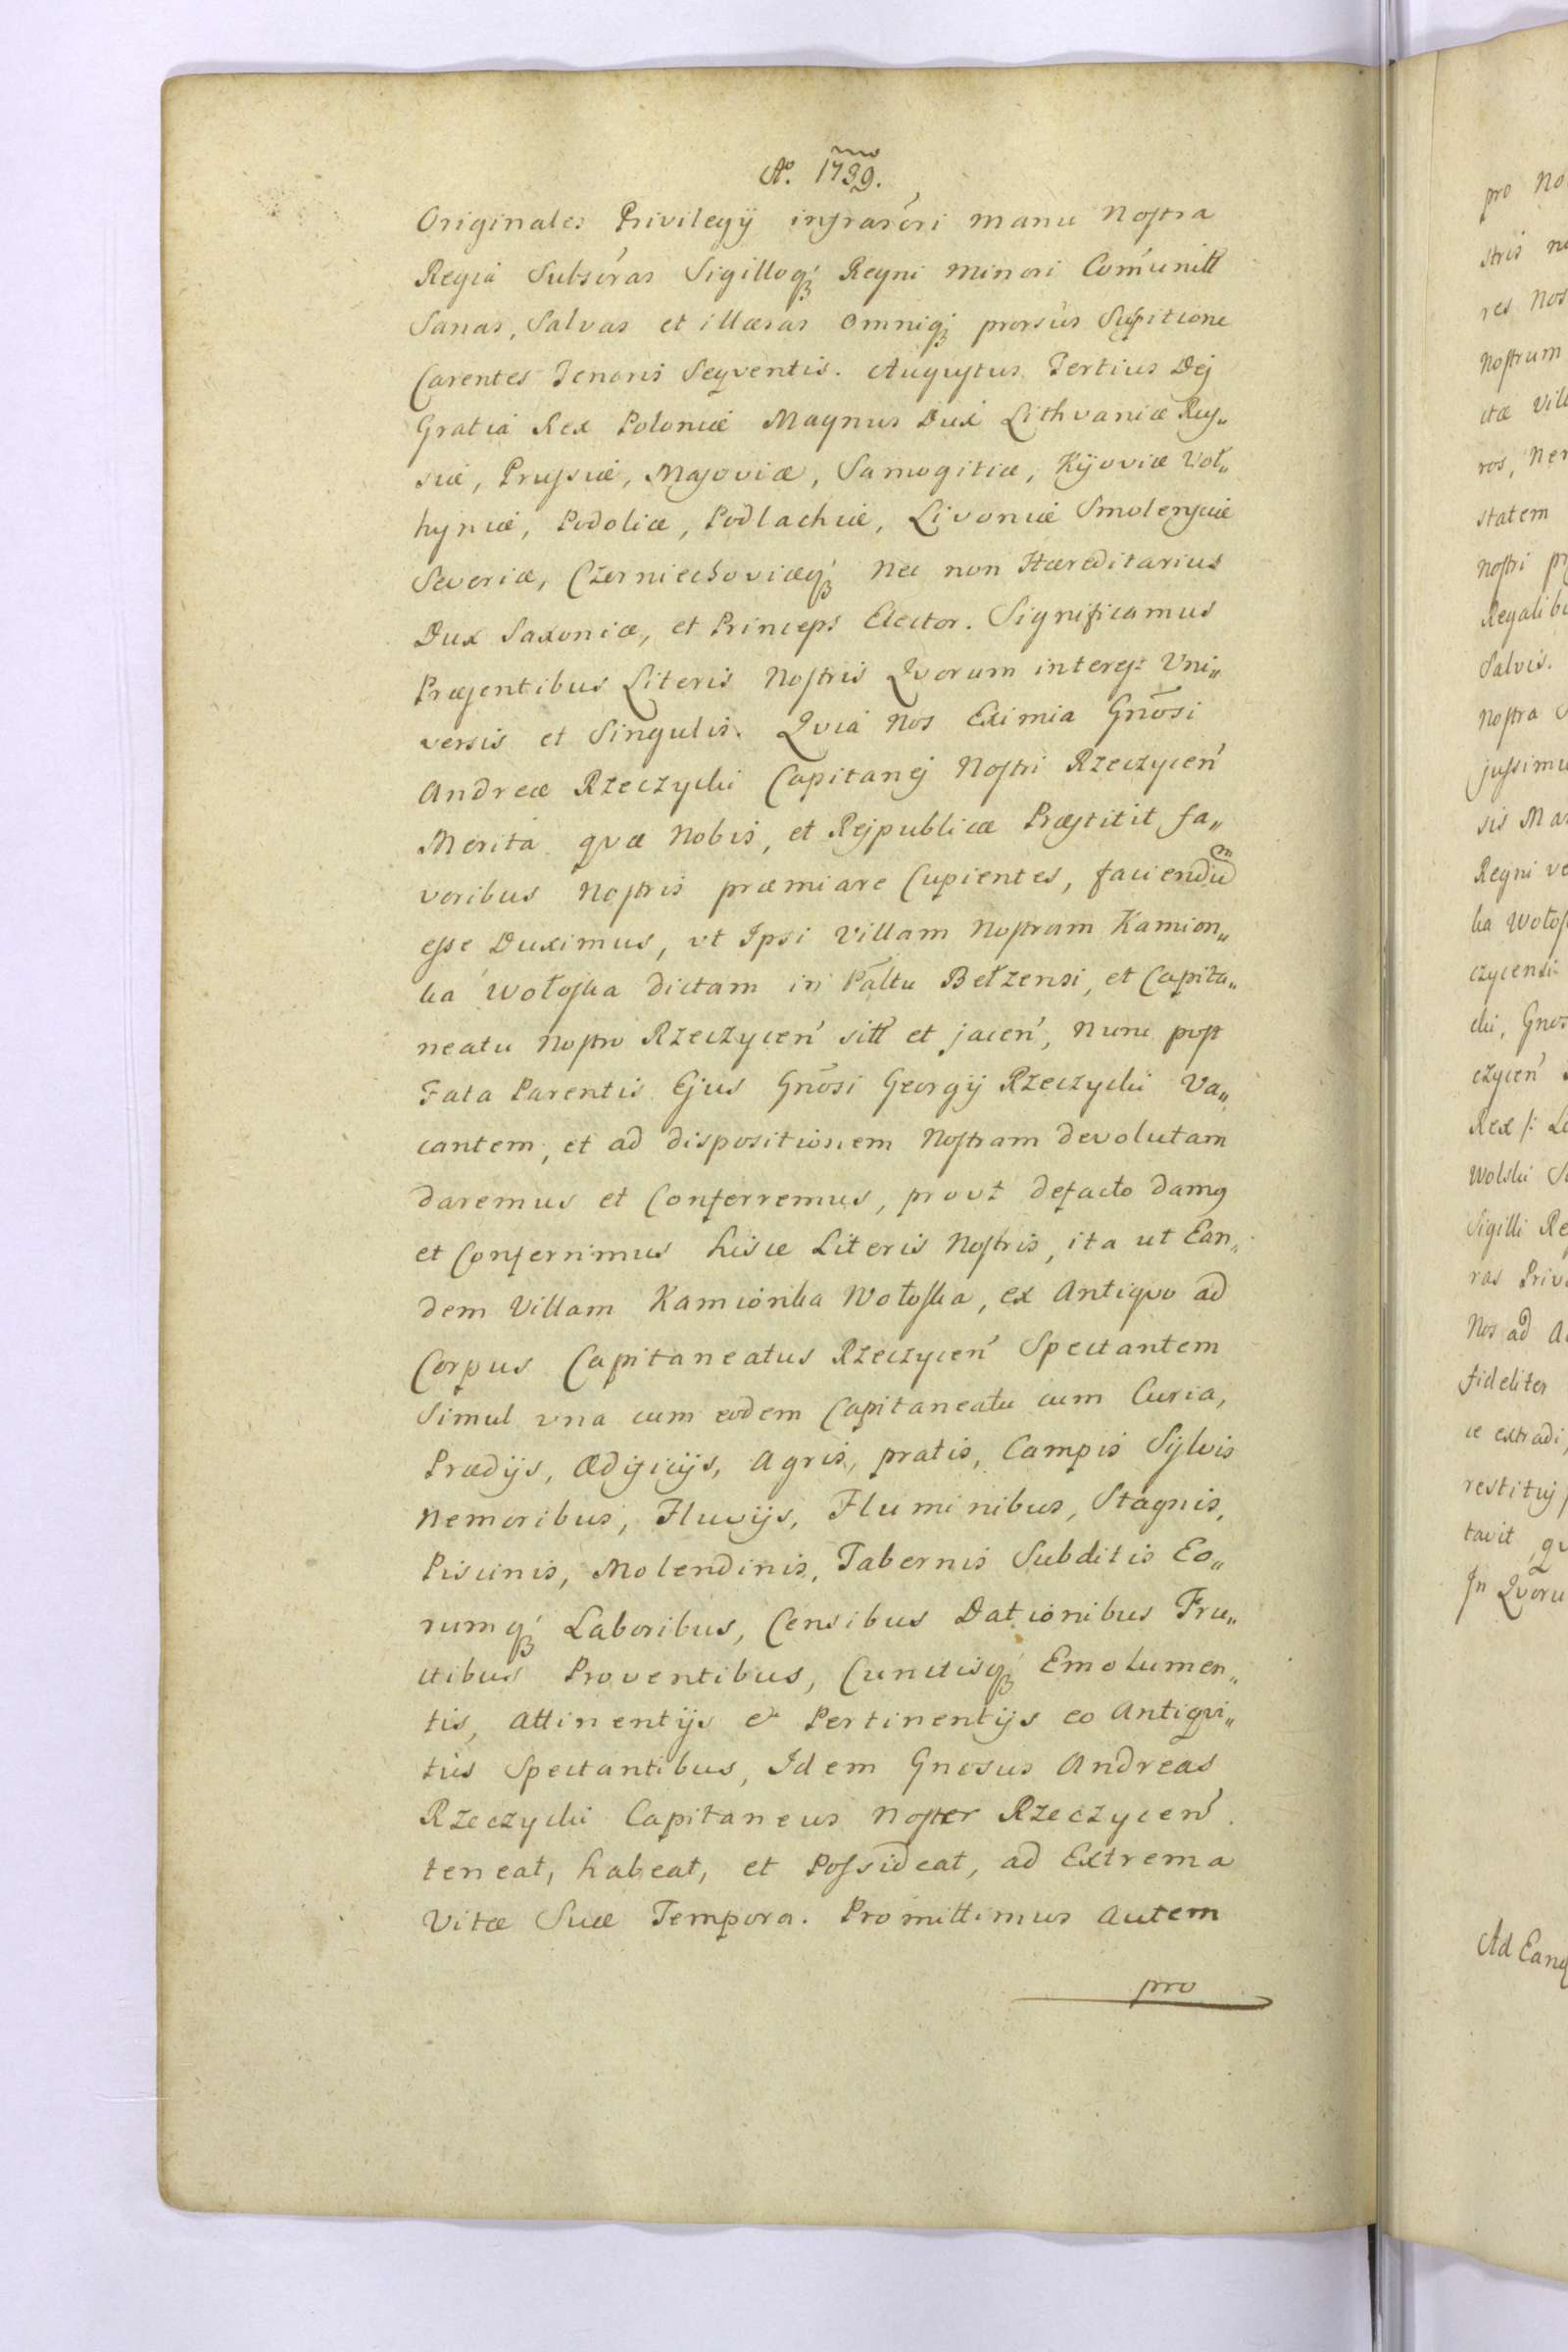 Aº. 1739. mo
Originales Privilegÿ infrascri manu Nostra
Regia Subscras Sigilloq; Regni minori Comunitt
Sanas, Salvas et illæsas omniq; prorsùs Suspitione
Carentes Tenoris Seqventis. Augustus Tertius Dej
Gratiá Rex Poloniæ Magnus Dux Lithvaniæ Rus„
siæ, Prussiæ, Masoviæ, Samogitiæ, Kijoviæ Voł„
hyniæ, Podoliæ, Podlachiæ, Livoniæ Smolensciæ
Severiæ, Czerniechoviæq; Nec non Hæreditarius
Dux Saxoniæ, et Princeps Elector. Significamus
Præsentibus Literis Nostris Qvorum interest Vni„
versis et Singulis. Qvià Nos Eximia Gnosi
Andreæ Rzeczycki Capitanej Nostri Rzeczycen
Merita qvæ Nobis, et Rejpublicæ Præstitit fa„
voribus Nostris præmiare Cupientes, faciendum
esse Duximus, vt Ipsi Villam Nostram Kamion„
ka Wołoska dictam in Paltu Bełzensi, et Capita„
neatu Nostro Rzeczycen sitt et jacen, Nunc post
Fata Parentis Ejus Gnosi Georgÿ Rzeczycki Va„
cantem, et ad dispositionem Nostram devolutam
daremus et Conferremus, provt defacto damq
et Conferrimus hisce Literis Nostris, ita ut Ean„
dem Villam Kamionka Wołoska, ex Antiqvo ad
Corpus Capitaneatus Rzeczycen Spectantem
Simul vna cum eodem Capitaneatu cum Curia,
Prædijs, Ædificijs, Agris, pratis, Campis Sylvis
Nemoribus, Fluvijs, Fluminibus, Stagnis,
Piscinis, Molendinis, Tabernis Subditis Eo„
rumq; Laboribus, Censibus Dationibus Fru„
ctibus Proventibus, Cunctisq; Emolumen„
tis, attinentijs & Pertinentijs eo Antiqvi„
tùs Spectantibus, Idem Gnosus Andreas
Rzeczycki Capitaneus Noster Rzeczycen.
teneat, habeat, et Possideat, ad Extrema
Vitæ Suæ Tempora. Promittimus Autem
pro
pro No
stris n
res Nos
Nostrum
ctæ vill
ros, Ner
statem
Nostri pr
Regalib
Salvis.
Nostra
jussimu
sis Ma
Regni ve
ka Wołos
czycensi
cki, Gnos
czycen
Rex
Wolski
Sigilli Re
ras Privi
Nos ad A
fideliter
ce extradi
restituj
tavit qu
In Qvoru
Ad Eand